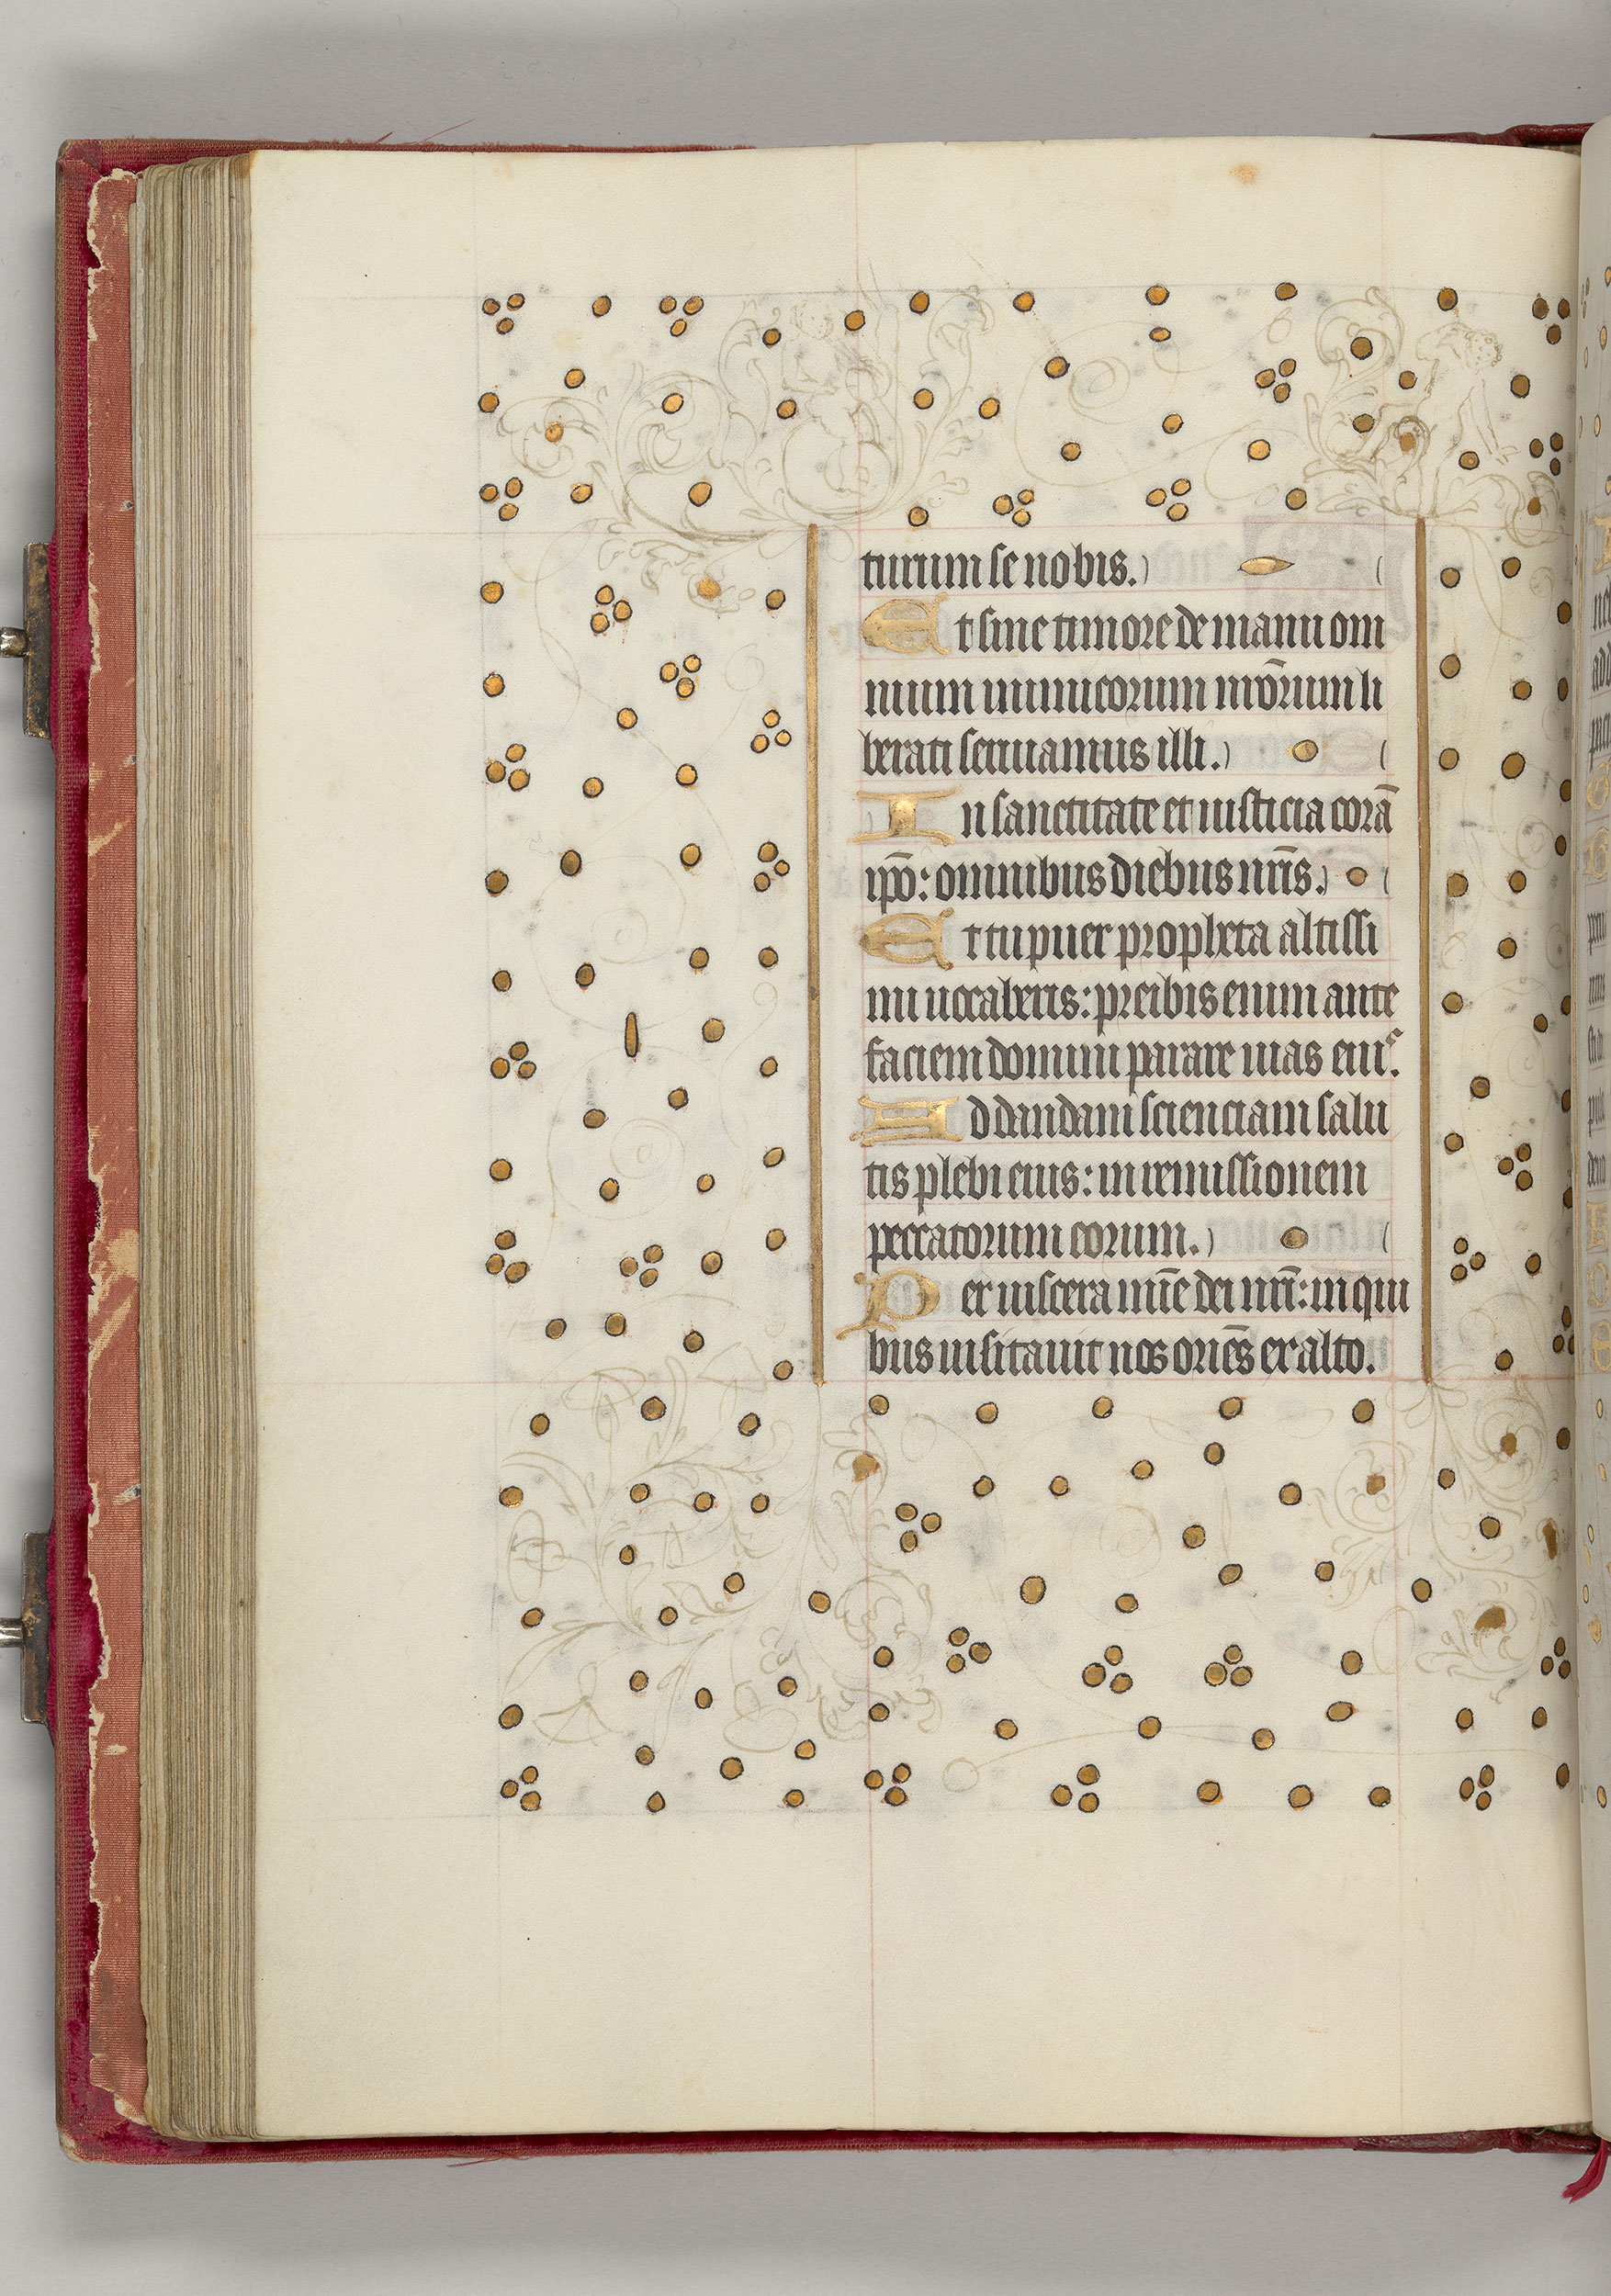 turum se nobis.
Et sine timore de manu om
nium inimicorum nr̄orum li
berati seruiamus illi.
In sanctitate et iusticia corā
ip̄o: omnibus diebus nr̄is.
Et tu puer propheta altissi
mi uocaberis: preibis enim ante
faciem domini parare uias eiuˢ.
Ad dandam scienciam salu
tis plebi eius: in remissionem
peccatorum eorum.
Per uiscera mīe dei nr̄i: in qui
bus uisitauit nos oriēs ex alto.